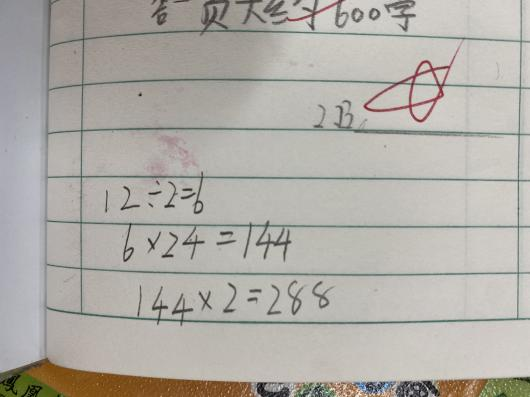 答一页大约写600字
2B
12÷2=6
6×24=144
144×2=288
鳳凰